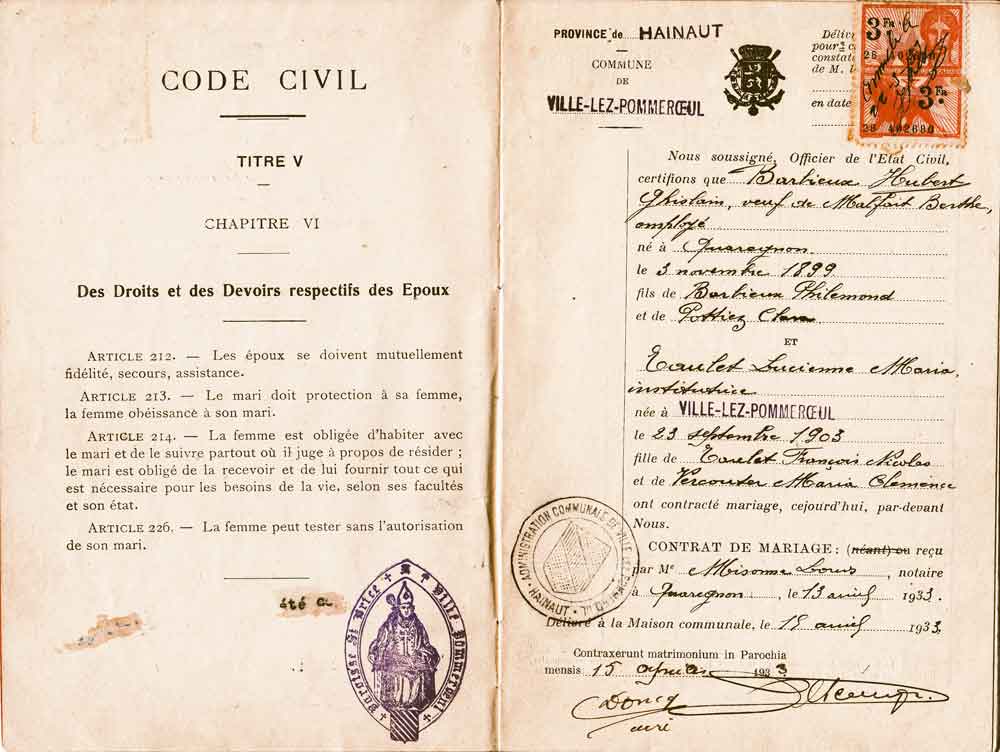 CODE CIVIL
TITRE V
CHAPITRE VI
Des Droits et des Devoirs respectifs des Epoux
ARTICLE 212. — Les époux se doivent mutuellement
fidélité, secours, assistance.
ARTICLE 213. — Le mari doit protection à sa femme,
la femme obéissance à son mari.
ARTICLE 214. — La femme est obligée d'habiter avec
le mari et de le suivre partout où il juge à propos de résider ;
le mari est obligé de la recevoir et de lui fournir tout ce qui
est nécessaire pour les besoins de la vie, selon ses facultés
et son état.
ARTICLE 226. — La femme peut tester sans l'autorisation
de son mari.
été
Paroisse St Brice Ville Pommerœul
PROVINCE de HAINAUT
COMMUNE
DE
VILLE-LEZ-POMMERŒUL
Déliv
pour
constat
de M. l
en date
3 Fr
3 Fr
26 492680
Nous soussigné, Officier de l'Etat Civil,
certifions que Barbieux Hubert
Ghislain, veuf de Malfait Berthe,
employé
né à Quaregnon
le 3 novembre 1899
fils de Barbieux Philemond
et de Pottiez Clara
ET
Taulet Lucienne Maria,
institutrice
née à VILLE-LEZ-POMMERŒUL
le 23 septembre 1903
fille de Taulet François Nicolas
et de Vercouter Maria Clémence
ont contracté mariage, cejourd'hui, par-devant
Nous.
CONTRAT DE MARIAGE : (néant) ou reçu
par Me Misonne Louis, notaire
à Quaregnon, le 13 avril 1933.
Délivré à la Maison communale, le 15 avril 1933.
ADMINISTRATION COMMUNALE DE VILLE LEZ
HAINAUT
Contraxerunt matrimonium in Parochia
mensis 15 aprilis 1933
Doncq
curé